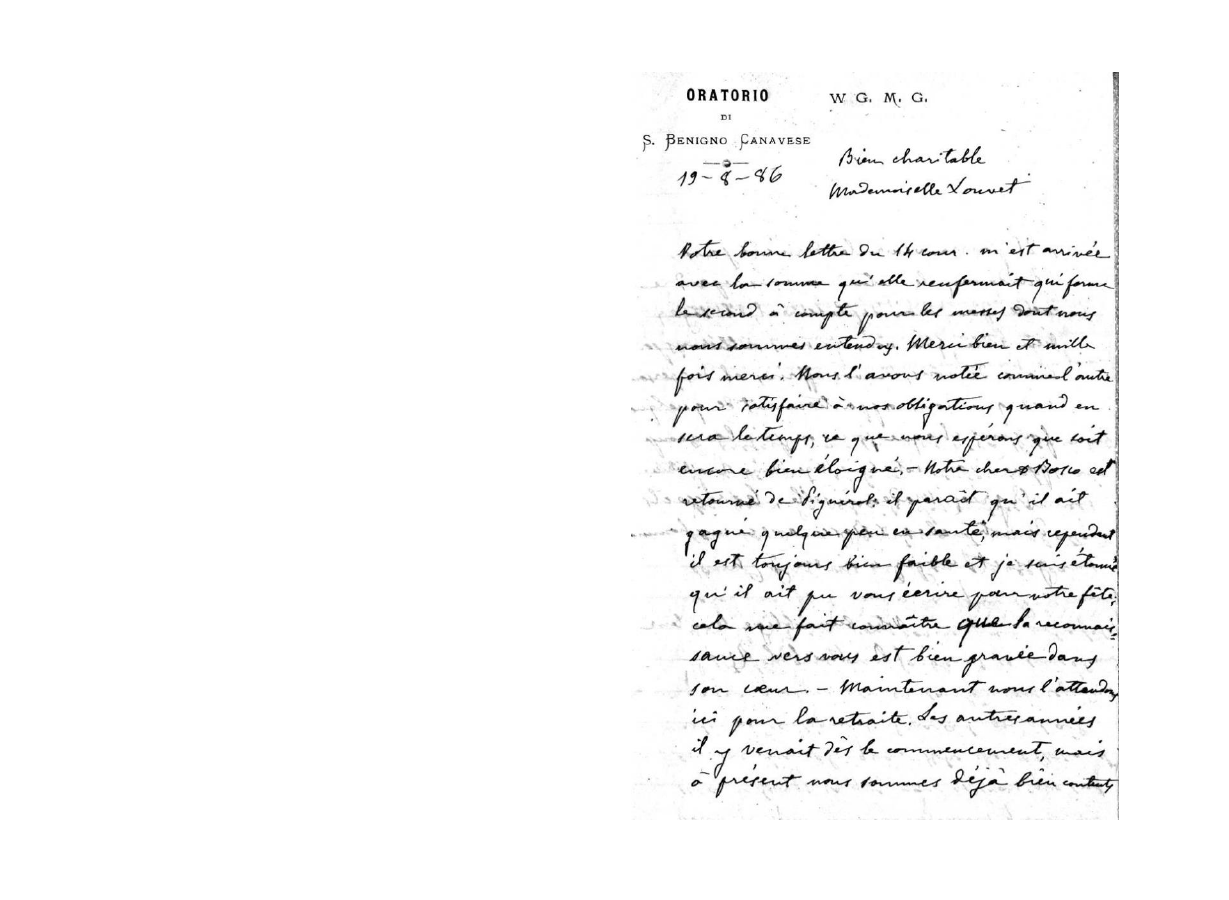 ORATORIO
DI
S. BENIGNO CANAVESE
19-8-86
W G. M. G.
Bien charitable
Mademoiselle Louvet
Votre bonne lettre du 14 cour. m'est arrivée
avec la somme qu'elle renfermait qui forme
le second à compte pour les messes dont nous
nous sommes entendus. Merci bien et mille
fois merci. Nous l'avons notée comme l'autre
pour satisfaire à nos obligations quand en
sera le temps, ce que nous espérons que soit
encore bien éloigné. - Notre cher D Bosco est
retourné de Pignérol; il paraît qu'il ait
gagné quelque peu en santé, mais cependant
il est toujours bien faible et je suis étonné
qu'il ait pu vous écrire pour votre fête;
cela me fait connaître que la reconnais-
sance vers vous est bien gravée dans
son cœur. - Maintenant nous l'attendons
ici pour la retraite. Les autres années
il y venait dès le commencement, mais
à présent nous sommes déjà bien contents